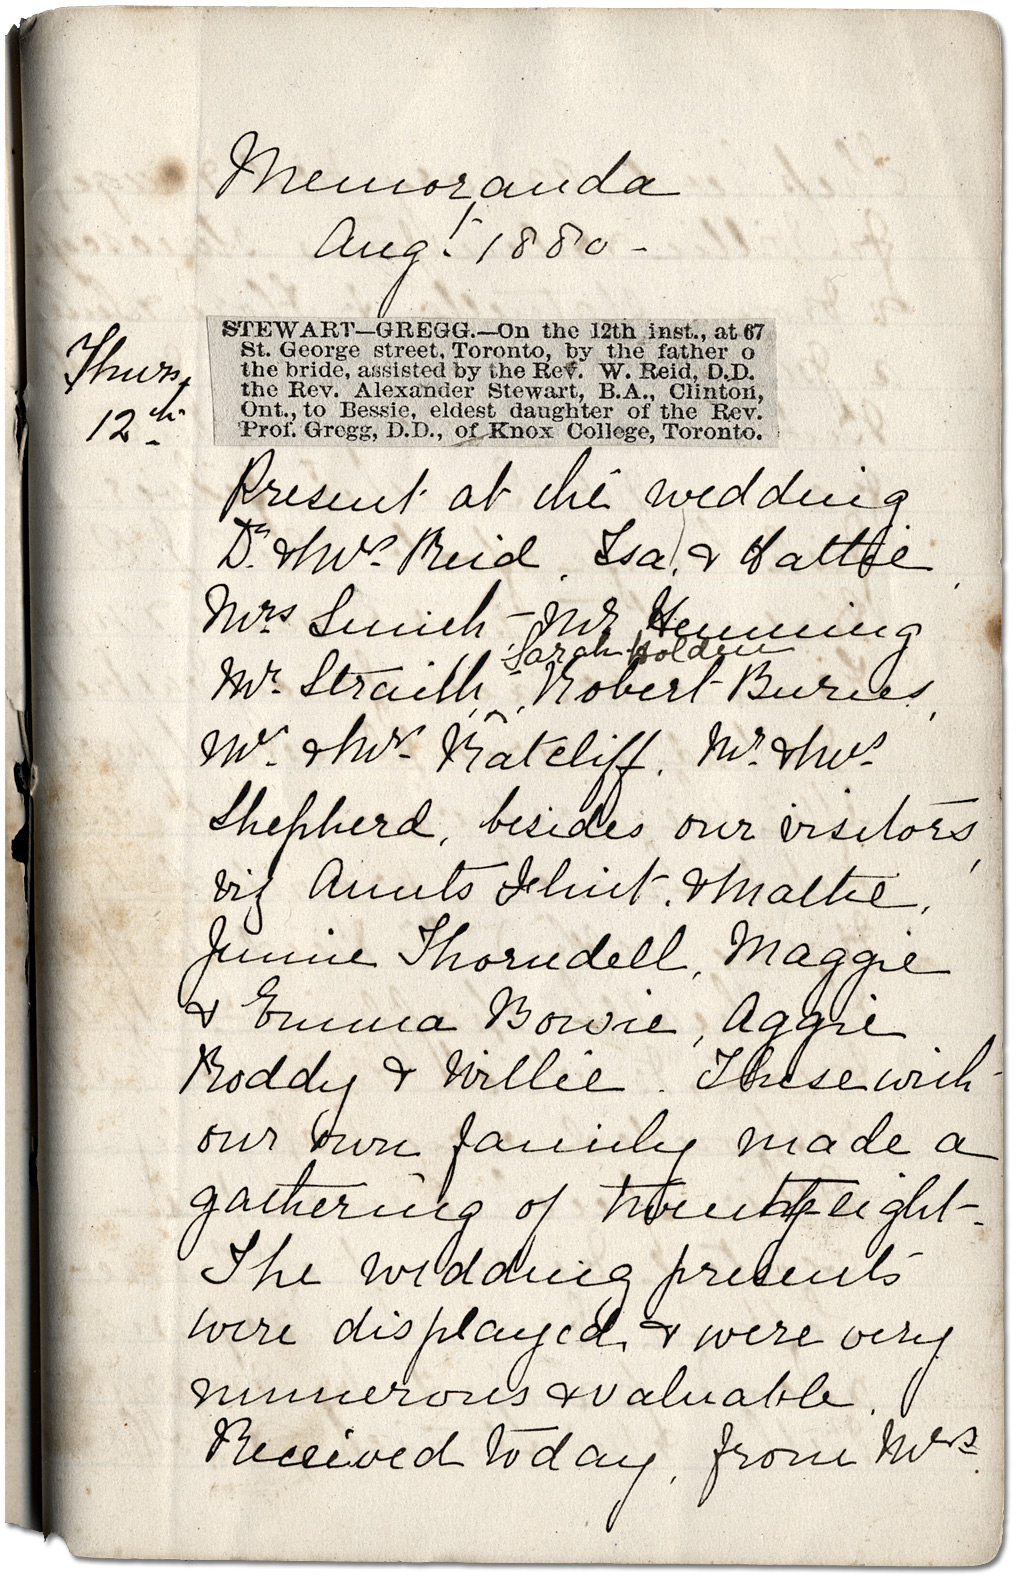 Memoranda
Augt. 1880 -
Thurs,
12th
STEWART—GREGG.—On the 12th inst., at 67
St. George street, Toronto, by the father o
the bride, assisted by the Rev. W. Reid, D.D.
the Rev. Alexander Stewart, B.A., Clinton,
Ont., to Bessie, eldest daughter of the Rev.
Prof. Gregg, D.D., of Knox College, Toronto.
Present at the wedding
Dr. & Mrs. Reid, Isa, & Hattie,
Mrs Smith - Mr Henning
Sarah Holden
Mr. Straith, ^ Robert Burnes,
Mr. & Mrs. Ratcliff. Mr. & Mrs.
Shepherd, besides our visitors,
viz Aunts & Mattie,
Jennie Thorndell, Maggie
& Emma Bowie, Aggie
Roddy & Willie. These with
our own family made a
gathering of twenty eight.
The wedding presents
were displayed & were very
numerous & valuable.
Received today, from Mrs.